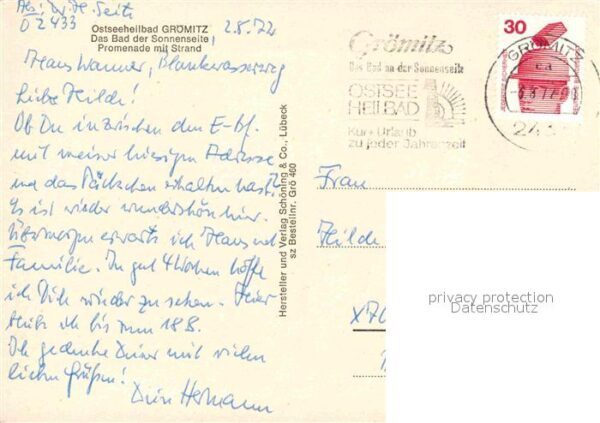 D 2433
Ostseeheilbad GRÖMITZ
Das Bad der Sonnenseite
Promenade mit Strand
2.8.72
Liebe Hilde!
Ob Du inzwischen den E-bf.
mit meiner hiesigen Adresse
und das Päckchen erhalten hast?
Es ist wieder wunderschön hier.
Übermorgen erwarte ich Hans und
Familie. In gut 4 Wochen hoffe
ich Dich wieder zu sehen. Hier
bleib ich bis zum 18.8.
Ich gedenke Deiner mit vielen
lieben Grüßen!
Dein Hermann
Hersteller und Verlag Schöning & Co., Lübeck
sz Bestellnr. Grö 400
Grömitz
Das Bad an der Sonnenseite
OSTSEE
HEILBAD
Kur + Urlaub
zu jeder Jahreszeit
30
GRÖMITZ
Frau
Hilde
privacy protection
Datenschutz